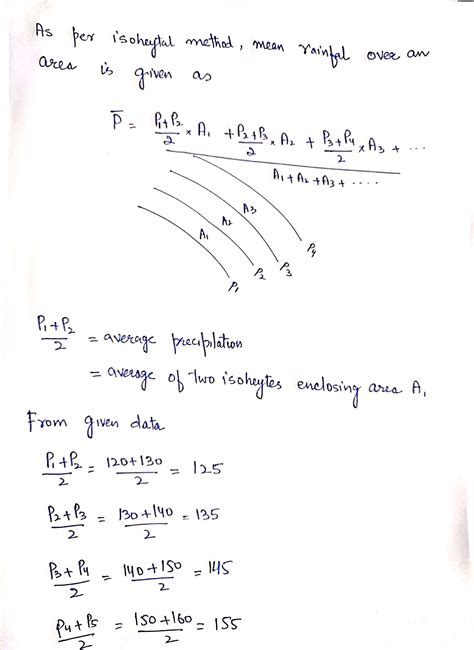 As per isoheytal method, mean rainfal over an
area is given as
P̄ = (P1+P2)/2 × A1 + (P2+P3)/2 × A2 + (P3+P4)/2 × A3 + ...
A1+A2+A3+ ....
A3
A2
A1
P4
P3
P2
P1
(P1+P2)/2 = average precipitation
= average of two isoheytes enclosing area A1
From given data
(P1+P2)/2 = (120+130)/2 = 125
(P2+P3)/2 = (130+140)/2 = 135
(P3+P4)/2 = (140+150)/2 = 145
(P4+P5)/2 = (150+160)/2 = 155